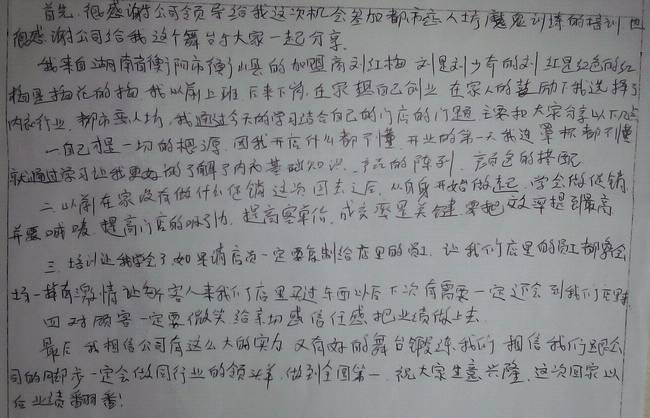 首先,很感谢公司领导给我这次机会参加都市丽人坊魔鬼训练的培训 也
很感谢公司给我这个舞台与大家一起分享.
我来自湖南省衡阳市衡山县的加盟商刘红梅 刘是刘少奇的刘 红是红色的红
梅是梅花的梅 我以前上班 后来下岗,在家想自己创业 在家人的鼓励下我选择了
内衣行业,都市丽人坊,我通过今天的学习结合自己的门店的问题 主要和大家分享以下几点
一 自己是一切的根源,因我开店什么都不懂 开业的第一天我连罩杯都不懂
就通过学习让我更好的了解了内衣基础知识,产品的陈列,颜色的搭配
二 以前在家没有做什么促销 这次回去之后,从自身开始做起,学会做促销
并要喊 提高门店的吸引力,提高客单价,成交率是关键 要把效率提到最高
三 培训让我学会了 如果请店员一定要复制给店里的员工 让我们店里的员工都
一样有激情 让每个客人来我们店里买过东西以后下次有需要一定还会到我们店里来
四 对顾客一定要微笑 给亲切感信任感 把业绩做上去.
最后 我相信公司有这么大的实力 又有好的舞台锻炼我们 相信我们跟公
司的脚步一定会做同行业的领头羊,做到全国第一.祝大家生意兴隆,这次回家以
后业绩翻番!